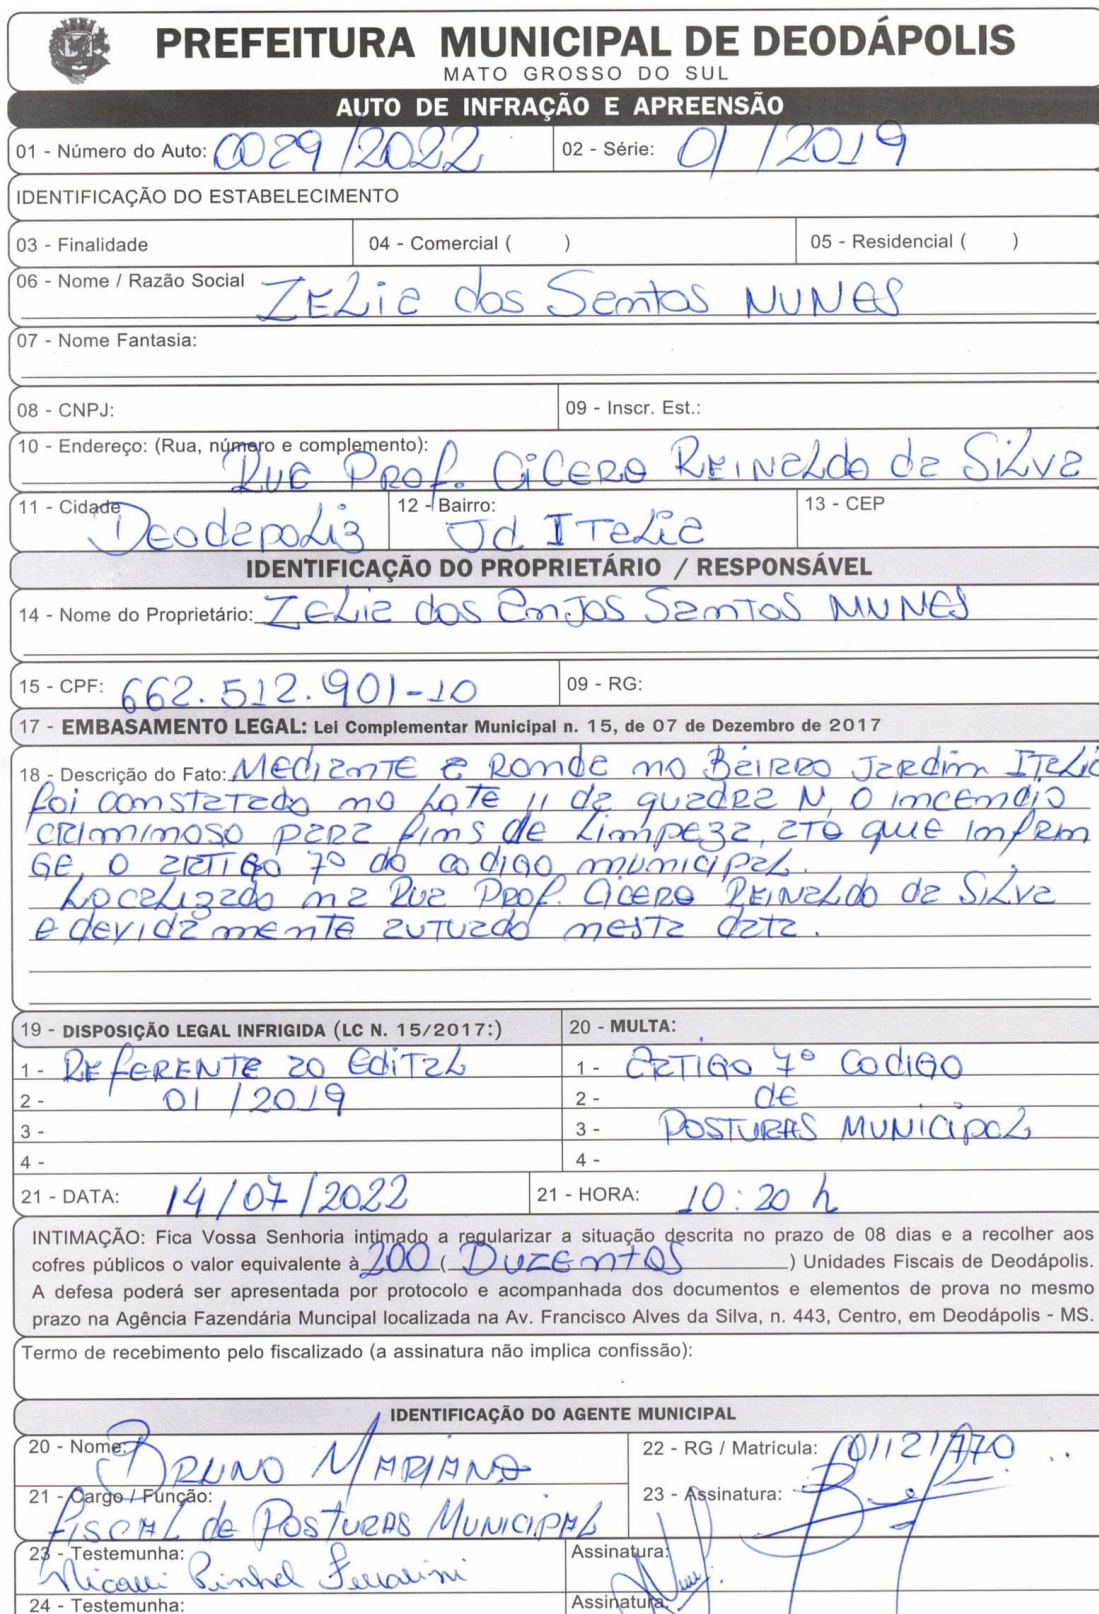 PREFEITURA MUNICIPAL DE DEODÁPOLIS
MATO GROSSO DO SUL
AUTO DE INFRAÇÃO E APREENSÃO
01 - Número do Auto: 0029/2022 02 - Série: 01/2019
IDENTIFICAÇÃO DO ESTABELECIMENTO
03 - Finalidade 04 - Comercial ( ) 05 - Residencial ( )
06 - Nome / Razão Social ZELia dos Santos NUNES
07 - Nome Fantasia:
08 - CNPJ: 09 - Inscr. Est.:
10 - Endereço: (Rua, número e complemento):
Rua PROf. CiCERO REINALdo da SiLva
11 - Cidade Deodapolis 12 - Bairro: Jd ITaLia 13 - CEP
IDENTIFICAÇÃO DO PROPRIETÁRIO / RESPONSÁVEL
14 - Nome do Proprietário: ZELia dos anJos SanTos NUNES
15 - CPF: 662.512.901-10 09 - RG:
17 - EMBASAMENTO LEGAL: Lei Complementar Municipal n. 15, de 07 de Dezembro de 2017
18 - Descrição do Fato: MedianTE a Ronda no BaiRRo Jardim ITaLia
foi constaTado no LoTE 11 da quadRa N, O incendio
CRiminoso paRa fins de Limpeza, aTo que infRin
GE, O aRTiGo 7º do codigo municipaL.
Localizado na Rua PRof. CiCERO REiNaLdo da SiLva
e devidamente auTuado nesta data.
19 - DISPOSIÇÃO LEGAL INFRIGIDA (LC N. 15/2017:) 20 - MULTA:
1 - REfERENTE ao EdiTaL 1 - aRTiGo 7º CodiGo
2 - 01/2019 2 - de
3 - 3 - POSTURAS MUNiCipaL
4 - 4 -
21 - DATA: 14/07/2022 21 - HORA: 10:20 h
INTIMAÇÃO: Fica Vossa Senhoria intimado a regularizar a situação descrita no prazo de 08 dias e a recolher aos
cofres públicos o valor equivalente à 200 ( DuzEntos ) Unidades Fiscais de Deodápolis.
A defesa poderá ser apresentada por protocolo e acompanhada dos documentos e elementos de prova no mesmo
prazo na Agência Fazendária Muncipal localizada na Av. Francisco Alves da Silva, n. 443, Centro, em Deodápolis - MS.
Termo de recebimento pelo fiscalizado (a assinatura não implica confissão):
IDENTIFICAÇÃO DO AGENTE MUNICIPAL
20 - Nome: BRUNO MARIANO 22 - RG / Matrícula:
21 - Cargo / Função: 23 - Assinatura:
fISCAL de POSTURAS MUNICIPAL
23 - Testemunha: Assinatura:
24 - Testemunha: Assinatura: